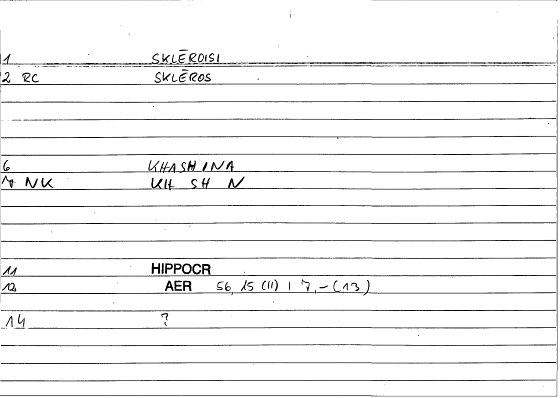 1 SKLĒROISI
2 RC SKLĒROS
6 KHASHINA
7 NK KH SH N
11 HIPPOCR
12 AER 56, 15 (11) 1 7, - (13)
14 ?